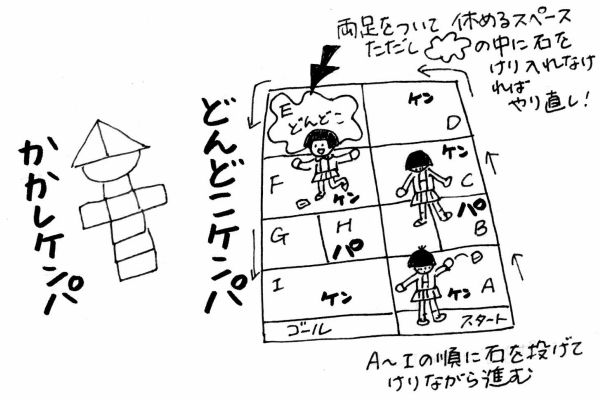 両足をついて 休めるスペース
ただし の中に石を
けり入れなけ
れば
やり直し!
かかしケンパ
どんどこケンパ
E
どんどこ
ケン
D
F
ケン
ケン
C
G
H
パ
パ
B
I
ケン
ケン
A
ゴール
スタート
A〜Iの順に石を投げて
けりながら進む